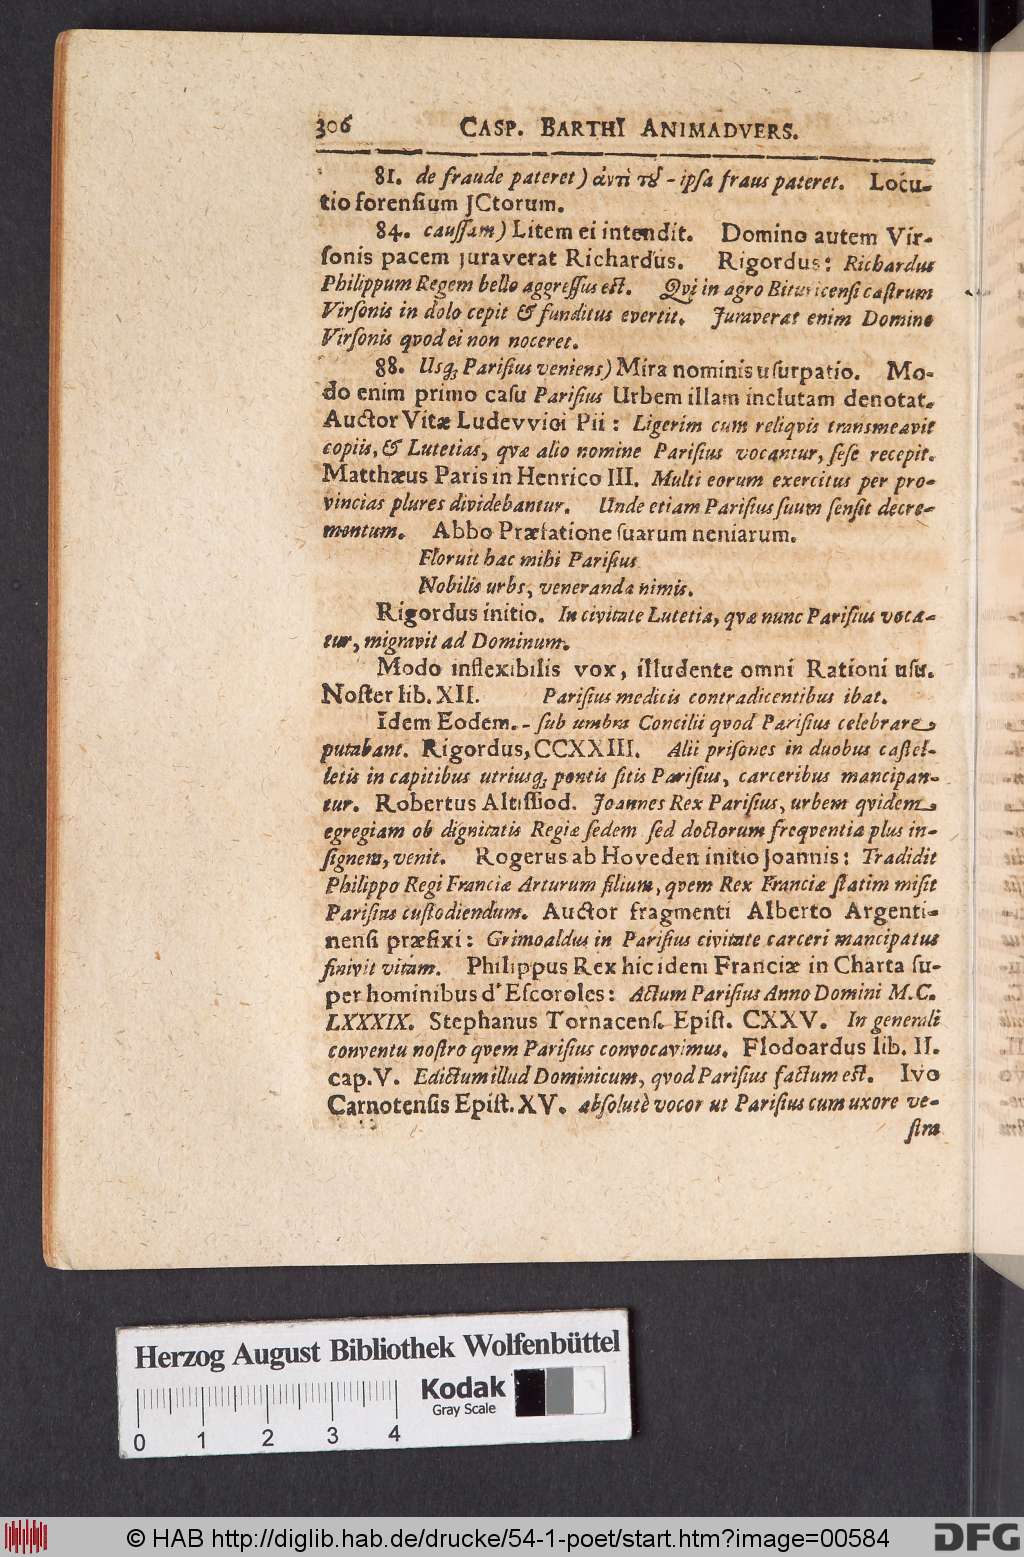 306 CASP. BARTHI ANIMADVERS.
81. de fraude pateret) ἀντὶ τȣ͂ - ipſa fraus pateret. Locu-
tio forenſium JCtorum.
84. cauſſam) Litem ei intendit. Domino autem Vir-
ſonis pacem juraverat Richardus. Rigordus: Richardus
Philippum Regem bello aggreſſus eſt. Qvi in agro Bituricenſi caſtrum
Virſonis in dolo cepit & funditus evertit. Juraverat enim Domino
Virſonis qvod ei non noceret.
88. Usq; Pariſius veniens) Mira nominis uſurpatio. Mo-
do enim primo caſu Pariſius Urbem illam inclutam denotat.
Auctor Vitæ Ludevvici Pii: Ligerim cum reliqvis transmeavit
copiis, & Lutetias, qvæ alio nomine Pariſius vocantur, ſeſe recepit.
Matthæus Paris in Henrico III. Multi eorum exercitus per pro-
vincias plures dividebantur. Unde etiam Pariſius ſuum ſenſit decre-
mentum. Abbo Præfatione ſuarum neniarum.
Floruit hac mihi Pariſius
Nobilis urbs, veneranda nimis.
Rigordus initio. In civitate Lutetia, qvæ nunc Pariſius voca-
tur, migravit ad Dominum.
Modo inflexibilis vox, illudente omni Rationi uſu.
Noſter lib. XII. Pariſius medicis contradicentibus ibat.
Idem Eodem. - ſub umbra Concilii qvod Pariſius celebrare
putabant. Rigordus, CCXXIII. Alii priſones in duobus caſtel-
letis in capitibus utriusq; pontis ſitis Pariſius, carceribus mancipan-
tur. Robertus Altiſſiod. Joannes Rex Pariſius, urbem qvidem
egregiam ob dignitatis Regiæ ſedem ſed doctorum freqventia plus in-
ſignem, venit. Rogerus ab Hoveden initio Joannis: Tradidit
Philippo Regi Franciæ Arturum filium, qvem Rex Franciæ ſtatim miſit
Pariſius cuſtodiendum. Auctor fragmenti Alberto Argenti-
nenſi præfixi: Grimoaldus in Pariſius civitate carceri mancipatus
finivit vitam. Philippus Rex hic idem Franciæ in Charta ſu-
per hominibus d'Eſcoroles: Actum Pariſius Anno Domini M.C.
LXXXIX. Stephanus Tornacenſ. Epiſt. CXXV. In generali
conventu noſtro qvem Pariſius convocavimus. Flodoardus lib. II.
cap. V. Edictum illud Dominicum, qvod Pariſius factum eſt. Ivo
Carnotenſis Epiſt. XV. abſolutè vocor ut Pariſius cum uxore ve-
ſtra
Herzog August Bibliothek Wolfenbüttel
Kodak
Gray Scale
0 1 2 3 4
© HAB http://diglib.hab.de/drucke/54-1-poet/start.htm?image=00584
DFG